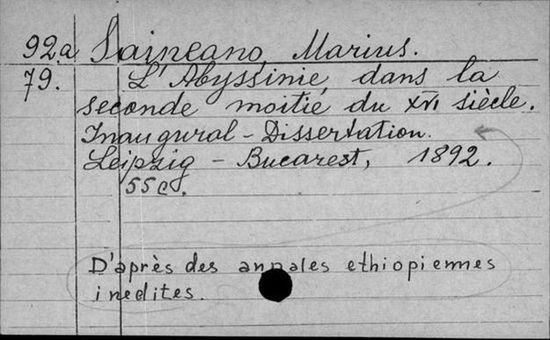 92.a Saineano, Marius.
79. L'Abyssinie dans la
seconde moitié du XVI siècle.
Inaugural-Dissertation.
Leipzig - Bucarest, 1892.
55c.
D'après des annales ethiopiennes
inedites.